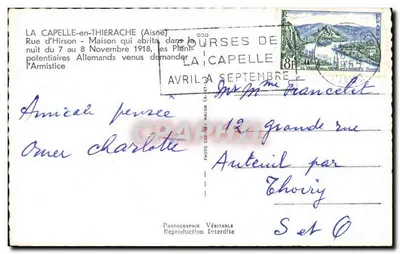 LA CAPELLE-en-THIERACHE (Aisne)
Rue d'Hirson - Maison qui abrita dans la
nuit du 7 au 8 Novembre 1918, les Pléni-
potentiaires Allemands venus demander
l'Armistice
COURSES DE
LA CAPELLE
AVRIL A SEPTEMBRE
18F
Mr Mme Francelet
12 grande rue
Auteuil par
Thoiry
S et O
Amicale pensée
Omer Charlotte
PHOTOGRAPHIE VÉRITABLE
Reproduction Interdite